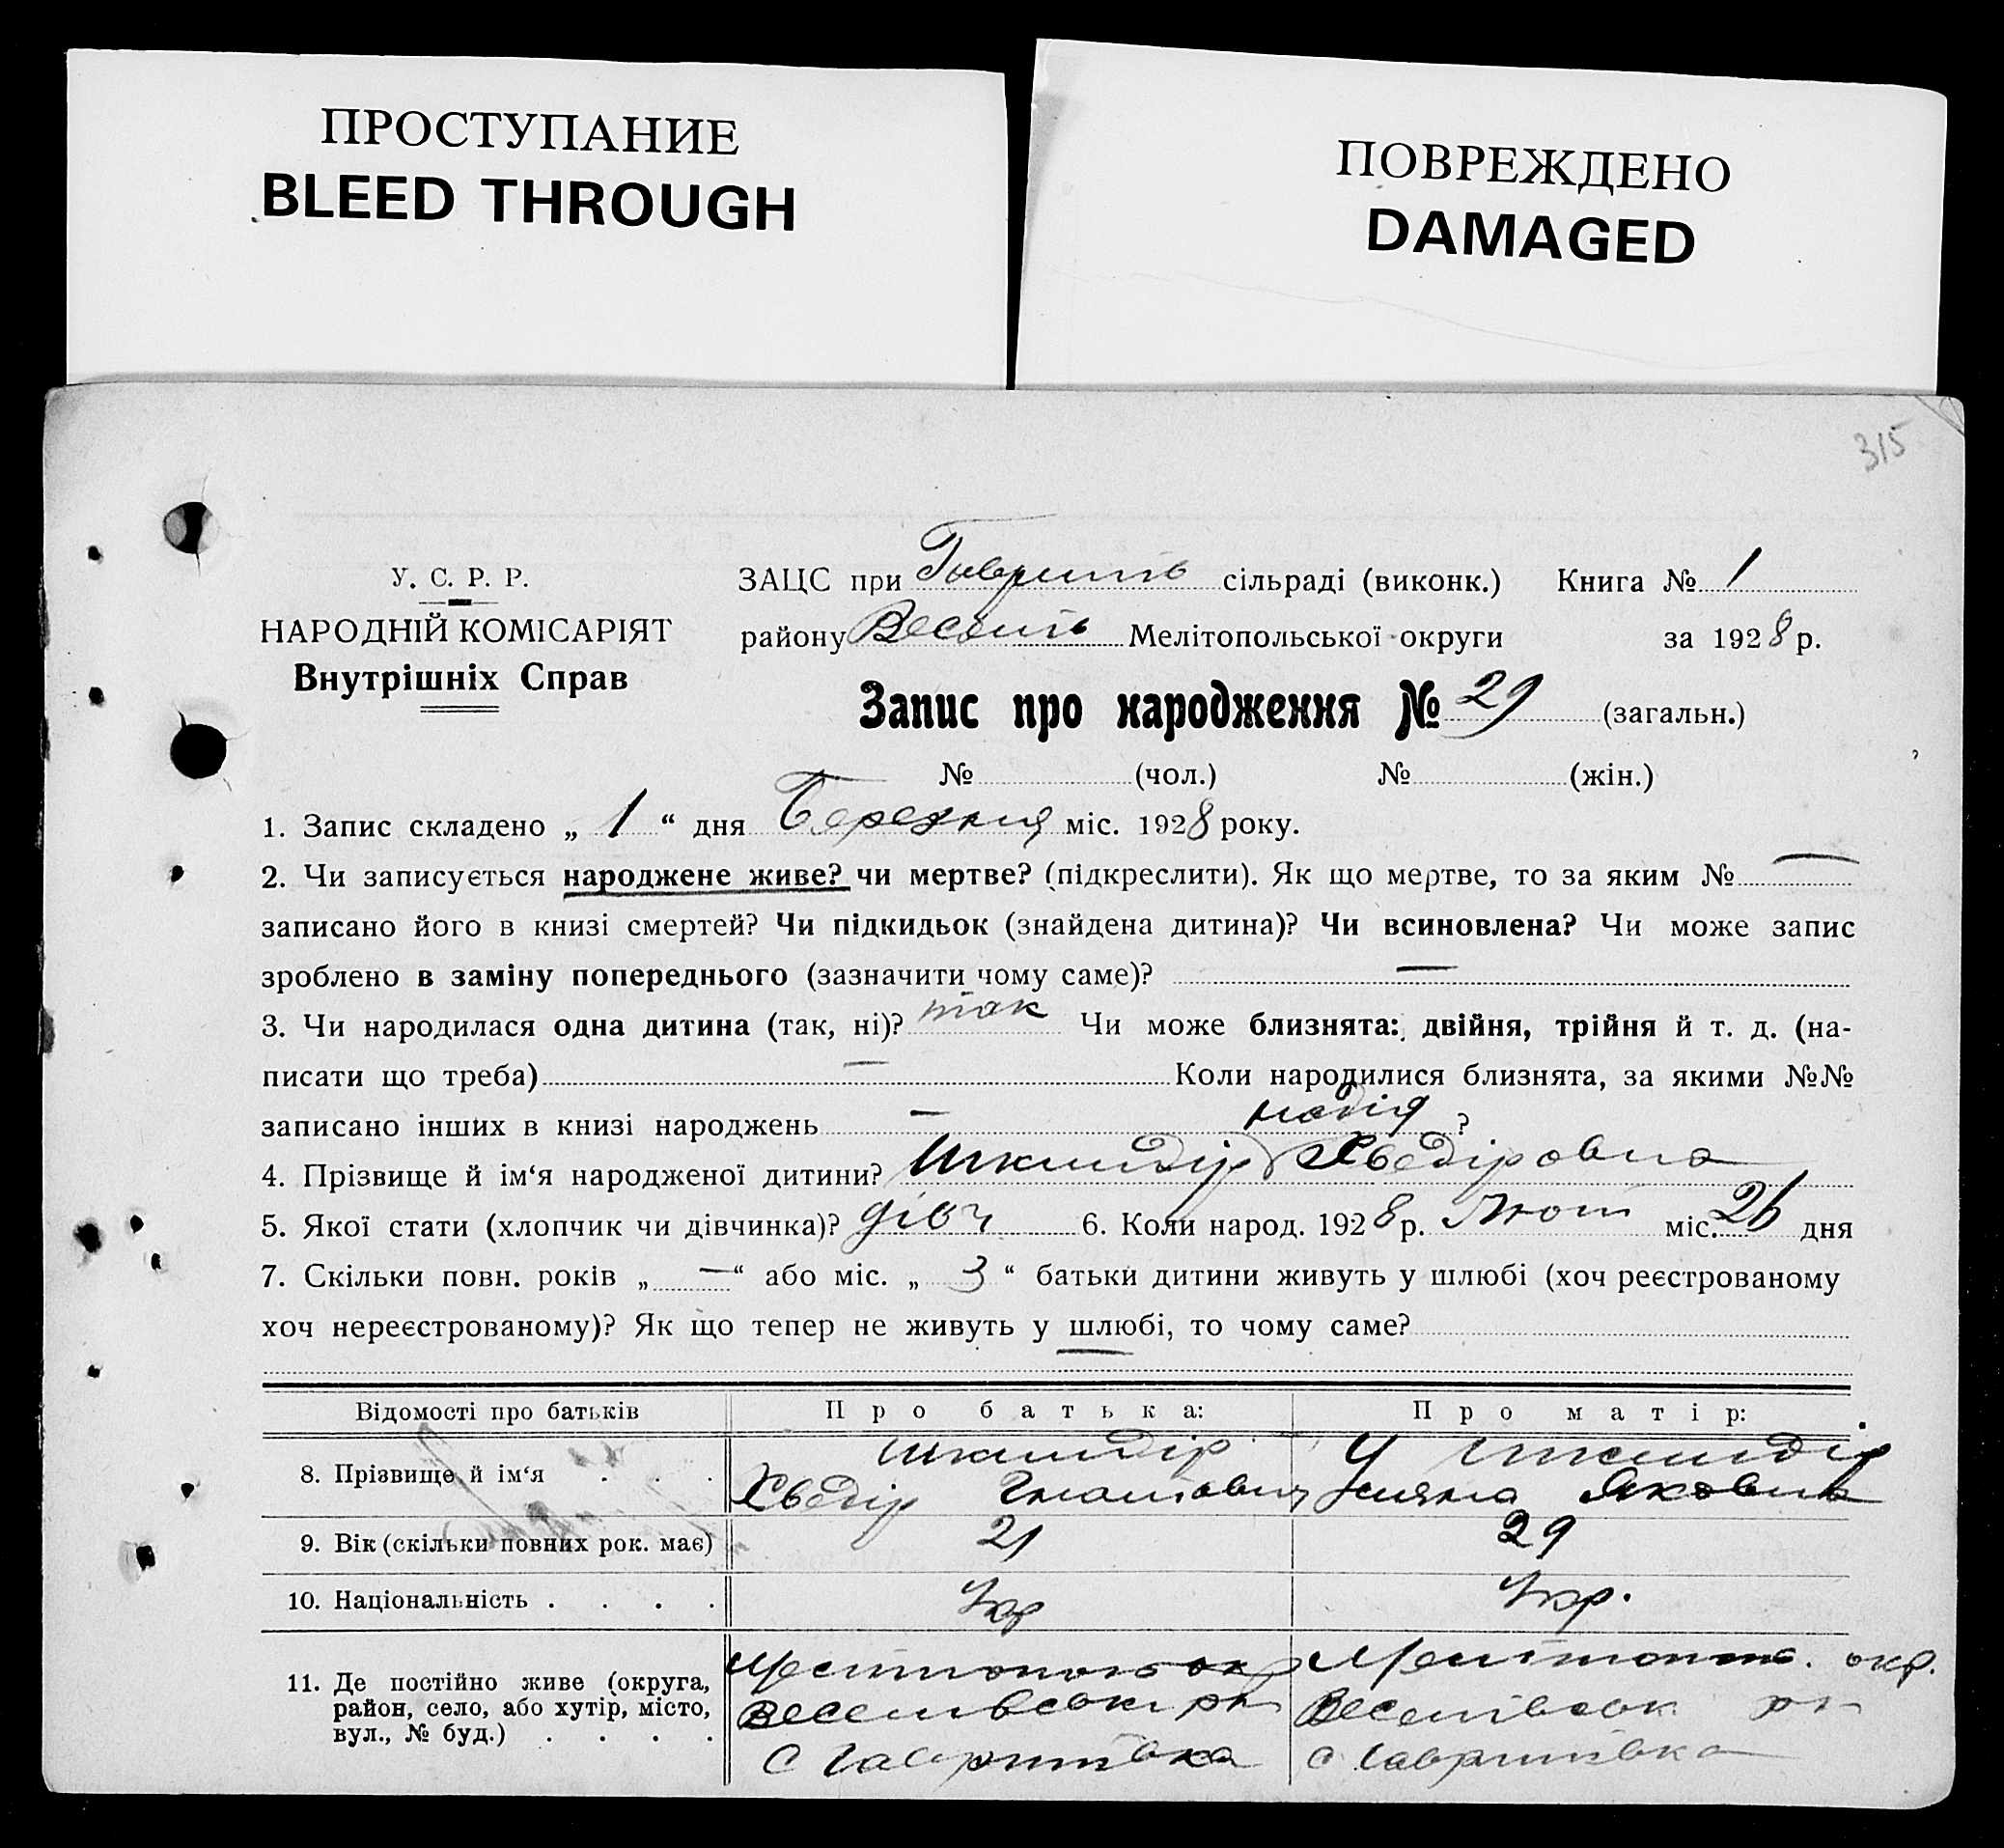 ПРОСТУПАНИЕ
BLEED THROUGH
ПОВРЕЖДЕНО
DAMAGED
315
У. С. Р. Р.
НАРОДНІЙ КОМІСАРІЯТ
Внутрішніх Справ
ЗАЦС при сільраді (виконк.) Книга № 1
району Мелітопольської округи за 1928 р.
Запис про народження № 29 (загальн.)
№ (чол.) № (жін.)
1. Запис складено „ 1 “ дня Березня міс. 1928 року.
2. Чи записується народжене живе? чи мертве? (підкреслити). Як що мертве, то за яким № —
записано його в книзі смертей? Чи підкидьок (знайдена дитина)? Чи всиновлена? Чи може запис
зроблено в заміну попереднього (зазначити чому саме)? —
3. Чи народилася одна дитина (так, ні)? так Чи може близнята: двійня, трійня й т. д. (на-
писати що треба) — Коли народилися близнята, за якими №№
записано інших в книзі народжень — ?
Надія
4. Прізвище й ім‘я народженої дитини? Шкиндір Хведіровна
5. Якої стати (хлопчик чи дівчинка)? дівч 6. Коли народ. 1928 р. Лют міс. 26 дня
7. Скільки повн. років „ — “ або міс. „ 3 “ батьки дитини живуть у шлюбі (хоч реєстрованому
хоч нереєстрованому)? Як що тепер не живуть у шлюбі, то чому саме?
—
Відомості про батьків Про батька: Про матір:
8. Прізвище й ім‘я . . . Шкиндір Шкиндір
Хведір Гнатович Яковна
9. Вік (скільки повних рок. має) 21 29
10. Національність . . . . Укр Укр.
11. Де постійно живе (округа,
район, село, або хутір, місто,
вул., № буд.) . . . .
окр.
Веселівськ рн Веселівськ рн
с Гаврилівка с Гаврилівка